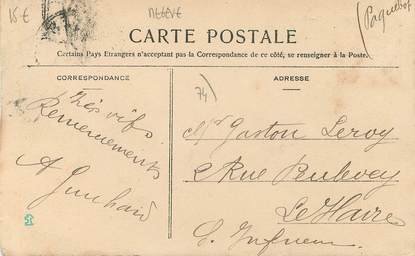 15€
MEGEVE
Paquebot
CARTE POSTALE
Certains Pays Etrangers n'acceptent pas la Correspondance de ce côté, se renseigner à la Poste.
CORRESPONDANCE
ADRESSE
74
Très vifs
Remerciements
A
Mr Gaston Leroy
2 Rue
Le Havre
S. Inférieure